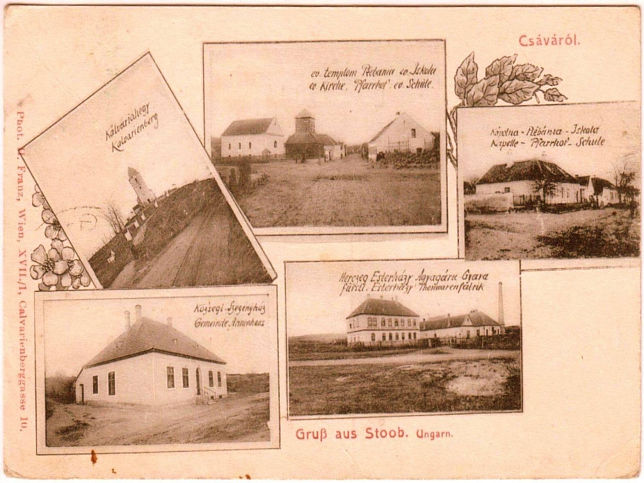 Csáváról.
Kálváriahegy
Kalvarienberg
ev. templom Plébánia ev. Iskola
ev. Kirche, Pfarrhof ev. Schule
Kápolna - Plébánia - Iskola
Kapelle - Pfarrhof - Schule
Herczeg Esterházy Agyagáru Gyara
Fürstl. Esterházy Thonwarenfabrik
Községi Szegényház
Gemeinde Armenhaus
Gruß aus Stoob. Ungarn.
Phot. G. Franz, Wien, XVII./1, Calvarienberggasse 10.